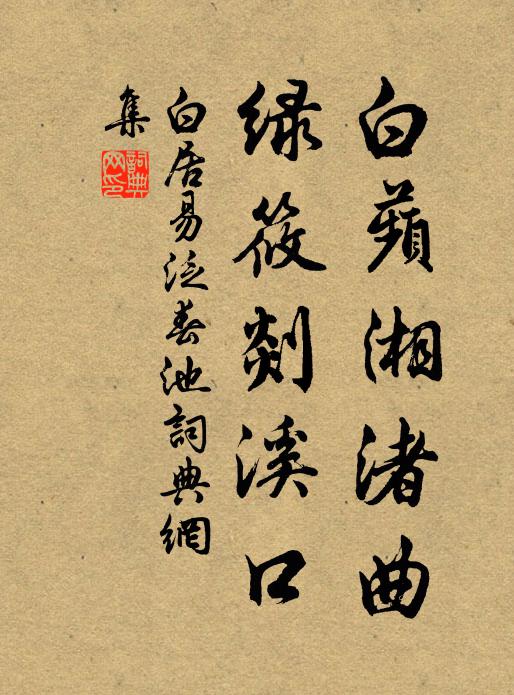 白蘋湘渚曲
緑筱剡溪口
白居易泛春池詞典網
集
詞典
网印